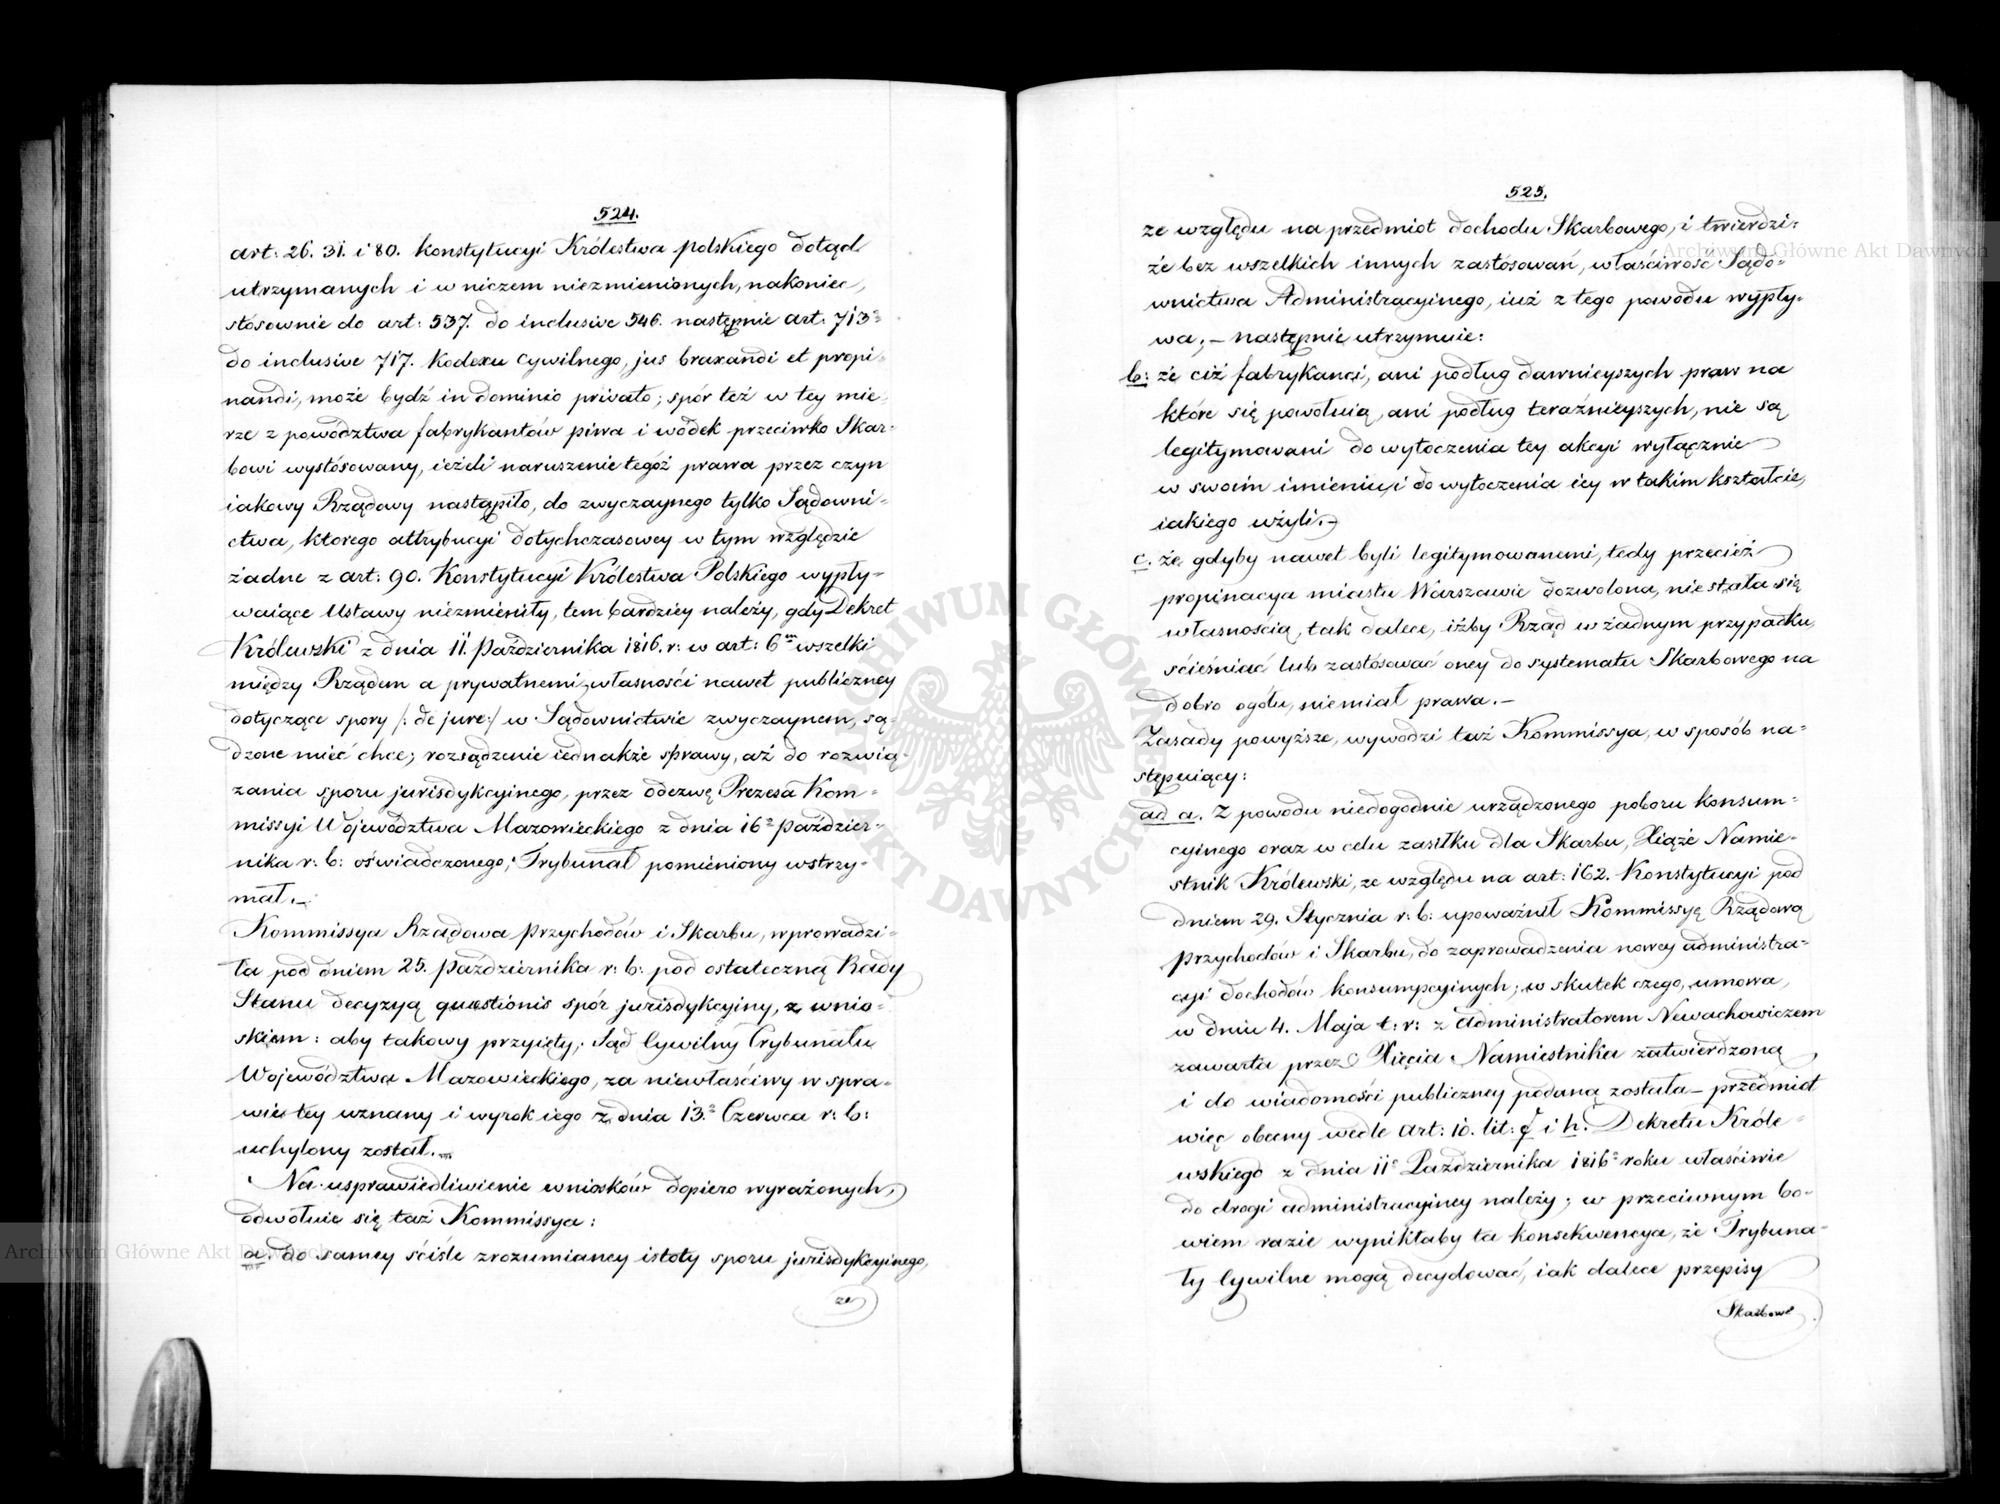 524.
art: 26. 31. i 80. Konstytucyi Królestwa polskiego dotąd
utrzymanych i w niczem niezmienionych, nakoniec,
stósownie do art: 537. do inclusive 546. następnie art. 713
do inclusive 717. Kodexu Cywilnego, jus braxandi et propi-
nandi, może bydź in dominio privato; spór też w tey mie-
rze z powództwa fabrykantów piwa i wódek przeciwko Skar-
bowi wystósowany, ieżeli naruszenie tegóż prawa przez czyn
iakowy Rządowy nastąpiło, do zwyczaynego tylko Sądowni-
ctwa, którego attrybucyi dotychczasowey w tym względzie
żadne z art: 90. Konstytucyi Królestwa Polskiego wypły-
waiące Ustawy niezmieniły, tem bardziey należy, gdy Dekret
Królewski z dnia 11. Października 1816. r: w art: 6m wszelki
między Rządem a prywatnemi, własności nawet publiczney
dotyczące spory /: de jure:/ w Sądownictwie zwyczaynem, są-
dzone mieć chce; rozsądzenie iednakże sprawy, aż do rozwią-
zania sporu jurisdykcyinego, przez odezwę Prezesa Kom-
missyi Województwa Mazowieckiego z dnia 16 Paździer-
nika r: b: oświadczonego, Trybunał pomieniony wstrzy-
mał.
Kommissya Rządowa Przychodów i Skarbu, wprowadzi-
ła pod dniem 25. Października r: b: pod ostateczną Rady
Stanu decyzyą quaestionis spór jurisdykcyiny, z wnio-
skiem: aby takowy przyięty, Sąd Cywilny Trybunału
Województwa Mazowieckiego, za niewłaściwy w spra-
wie tey uznany i wyrok iego z dnia 13. Czerwca r: b:
uchylony został.
Na usprawiedliwienie wniosków dopiero wyrażonych,
odwołuie się taż Kommissya:
a. do samey ściśle zrozumianey istoty sporu jurisdykcyinego,
ze
525.
ze względu na przedmiot dochodu Skarbowego, i twierdzi:
że bez wszelkich innych zastósowań, właściwość Sądo-
wnictwa Administracyinego, iuż z tego powodu wypły-
wa; – następnie utrzymuie:
b: że ciż fabrykanci, ani podług dawnieyszych praw na
które się powołuią, ani podług teraźnieyszych, nie są
legitymowani do wytoczenia tey akcyi wyłącznie
w swoim imieniu, i do wytoczenia iey w takim kształcie,
iakiego użyli.
c. że gdyby nawet byli legitymowanemi, tedy przecież
propinacya miastu Warszawie dozwolona, nie stała się
własnością, tak dalece, iżby Rząd w żadnym przypadku
ścieśniać lub zastósować oney do systematu Skarbowego na
dobro ogółu, niemiał prawa. –
Zasady powyższe, wywodzi taż Kommissya, w sposób na-
stępuiący:
ad a. Z powodu niedogodnie urządzonego poboru konsum-
cyinego oraz w celu zasiłku dla Skarbu, Xiąże Namie-
stnik Królewski, ze względu na art: 162. Konstytucyi pod
dniem 29. Stycznia r: b: upoważnił Kommissyę Rządową
Przychodów i Skarbu, do zaprowadzenia nowey administra-
cyi dochodów konsumpcyinych; w skutek czego, umowa,
w dniu 4. Maja t: r: z Administratorem Newachowiczem
zawarta przez Xięcia Namiestnika zatwierdzoną
i do wiadomości publiczney podaną została – przedmiot
więc obecny wedle art: 10. lit: f i h. Dekretu Króle-
wskiego z dnia 11 Października 1816 roku właściwie
do drogi administracyiney należy; w przeciwnym bo-
wiem razie wynikłaby ta konsekwencya, że Trybuna-
ły Cywilne mogą decydować, iak dalece przepisy
Skarbowe
Archiwum Główne Akt Dawnych
Archiwum Główne Akt Dawnych
ARCHIWUM GŁÓWNE AKT DAWNYCH